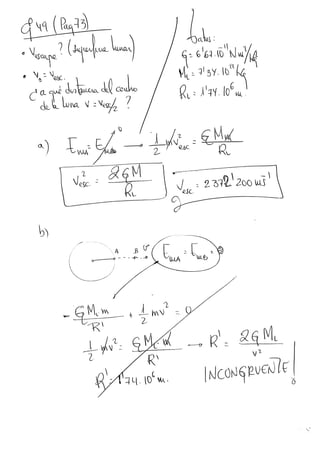 49 (Pag 73)
• Vescape? (superficie lunar)
• V₀ = Vesc.
¿a qué distancia del centro
de la luna v = Vesc/2 ?
Datos:
G = 6'67·10⁻¹¹ N m²/kg
M_L = 7'34·10²² kg
R_L = 1'74·10⁶ m.
a) E_mA = E_m∞ = 0 → 1/2 m v²esc = G M m / R_L
v²esc = 2GM / R_L
Vesc = 2372'200 ms⁻¹
b)
A B
E_mA = E_mB = 0
- G M_L m / R' + 1/2 m v² = 0
1/2 m v² = G M_L m / R' → R' = 2GM_L / v²
R' = 1'74·10⁶ m.
INCONGRUENTE!